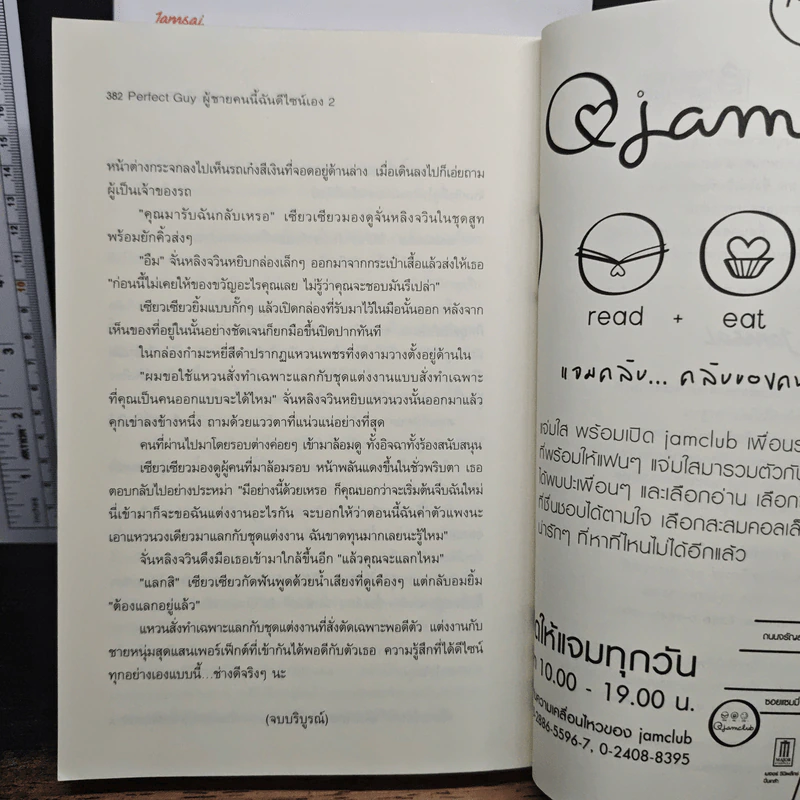 Jamsai
382 Perfect Guy ผู้ชายคนนี้ฉันดีไซน์เอง 2
หน้าต่างกระจกลงไปเห็นรถเก๋งสีเงินที่จอดอยู่ด้านล่าง เมื่อเดินลงไปก็เอ่ยถาม
ผู้เป็นเจ้าของรถ
"คุณมารับฉันกลับเหรอ" เซียวเซียวมองดูจั่นหลิงจวินในชุดสูท
พร้อมยักคิ้วส่งๆ
"อืม" จั่นหลิงจวินหยิบกล่องเล็กๆ ออกมาจากกระเป๋าเสื้อแล้วส่งให้เธอ
"ก่อนนี้ไม่เคยให้ของขวัญอะไรคุณเลย ไม่รู้ว่าคุณจะชอบมันรึเปล่า"
เซียวเซียวยิ้มแบบกั๊กๆ แล้วเปิดกล่องที่รับมาไว้ในมือนั้นออก หลังจาก
เห็นของที่อยู่ในนั้นอย่างชัดเจนก็ยกมือขึ้นปิดปากทันที
ในกล่องกำมะหยี่สีดำปรากฏแหวนเพชรที่งดงามวางตั้งอยู่ด้านใน
"ผมขอใช้แหวนสั่งทำเฉพาะแลกกับชุดแต่งงานแบบสั่งทำเฉพาะ
ที่คุณเป็นคนออกแบบจะได้ไหม" จั่นหลิงจวินหยิบแหวนวงนั้นออกมาแล้ว
คุกเข่าลงข้างหนึ่ง ถามด้วยแววตาที่แน่วแน่อย่างที่สุด
คนที่ผ่านไปมาโดยรอบต่างค่อยๆ เข้ามาล้อมดู ทั้งอิจฉาทั้งร้องสนับสนุน
เซียวเซียวมองดูผู้คนที่มาล้อมรอบ หน้าพลันแดงขึ้นในชั่วพริบตา เธอ
ตอบกลับไปอย่างประหม่า "มีอย่างนี้ด้วยเหรอ ก็คุณบอกว่าจะเริ่มต้นจีบฉันใหม่
นี่เข้ามาก็จะขอฉันแต่งงานอะไรกัน จะบอกให้ว่าตอนนี้ฉันค่าตัวแพงนะ
เอาแหวนวงเดียวมาแลกกับชุดแต่งงาน ฉันขาดทุนมากเลยนะรู้ไหม"
จั่นหลิงจวินดึงมือเธอเข้ามาใกล้ขึ้นอีก "แล้วคุณจะแลกไหม"
"แลกสิ" เซียวเซียวกัดฟันพูดด้วยน้ำเสียงที่ดูเคืองๆ แต่กลับอมยิ้ม
"ต้องแลกอยู่แล้ว"
แหวนสั่งทำเฉพาะแลกกับชุดแต่งงานที่สั่งตัดเฉพาะพอดีตัว แต่งงานกับ
ชายหนุ่มสุดแสนเพอร์เฟ็กต์ที่เข้ากันได้พอดีกับตัวเธอ ความรู้สึกที่ได้ดีไซน์
ทุกอย่างเองแบบนี้...ช่างดีจริงๆ นะ
(จบบริบูรณ์)
@jam
read + eat
แจมคลับ... คลับของคน
แจ่มใส พร้อมเปิด jamclub เพื่อน
ที่พร้อมให้แฟนๆ แจ่มใสมารวมตัวกัน
ได้พบปะเพื่อนๆ และเลือกอ่าน เลือก
ที่ชื่นชอบได้ตามใจ เลือกสะสมคอลเล็
น่ารักๆ ที่หาที่ไหนไม่ได้อีกแล้ว
ให้แจมทุกวัน
10.00 - 19.00 น.
ความเคลื่อนไหวของ jamclub
2886-5596-7, 0-2408-8395
@jamclub
ซอยแซมมี่
MAJOR